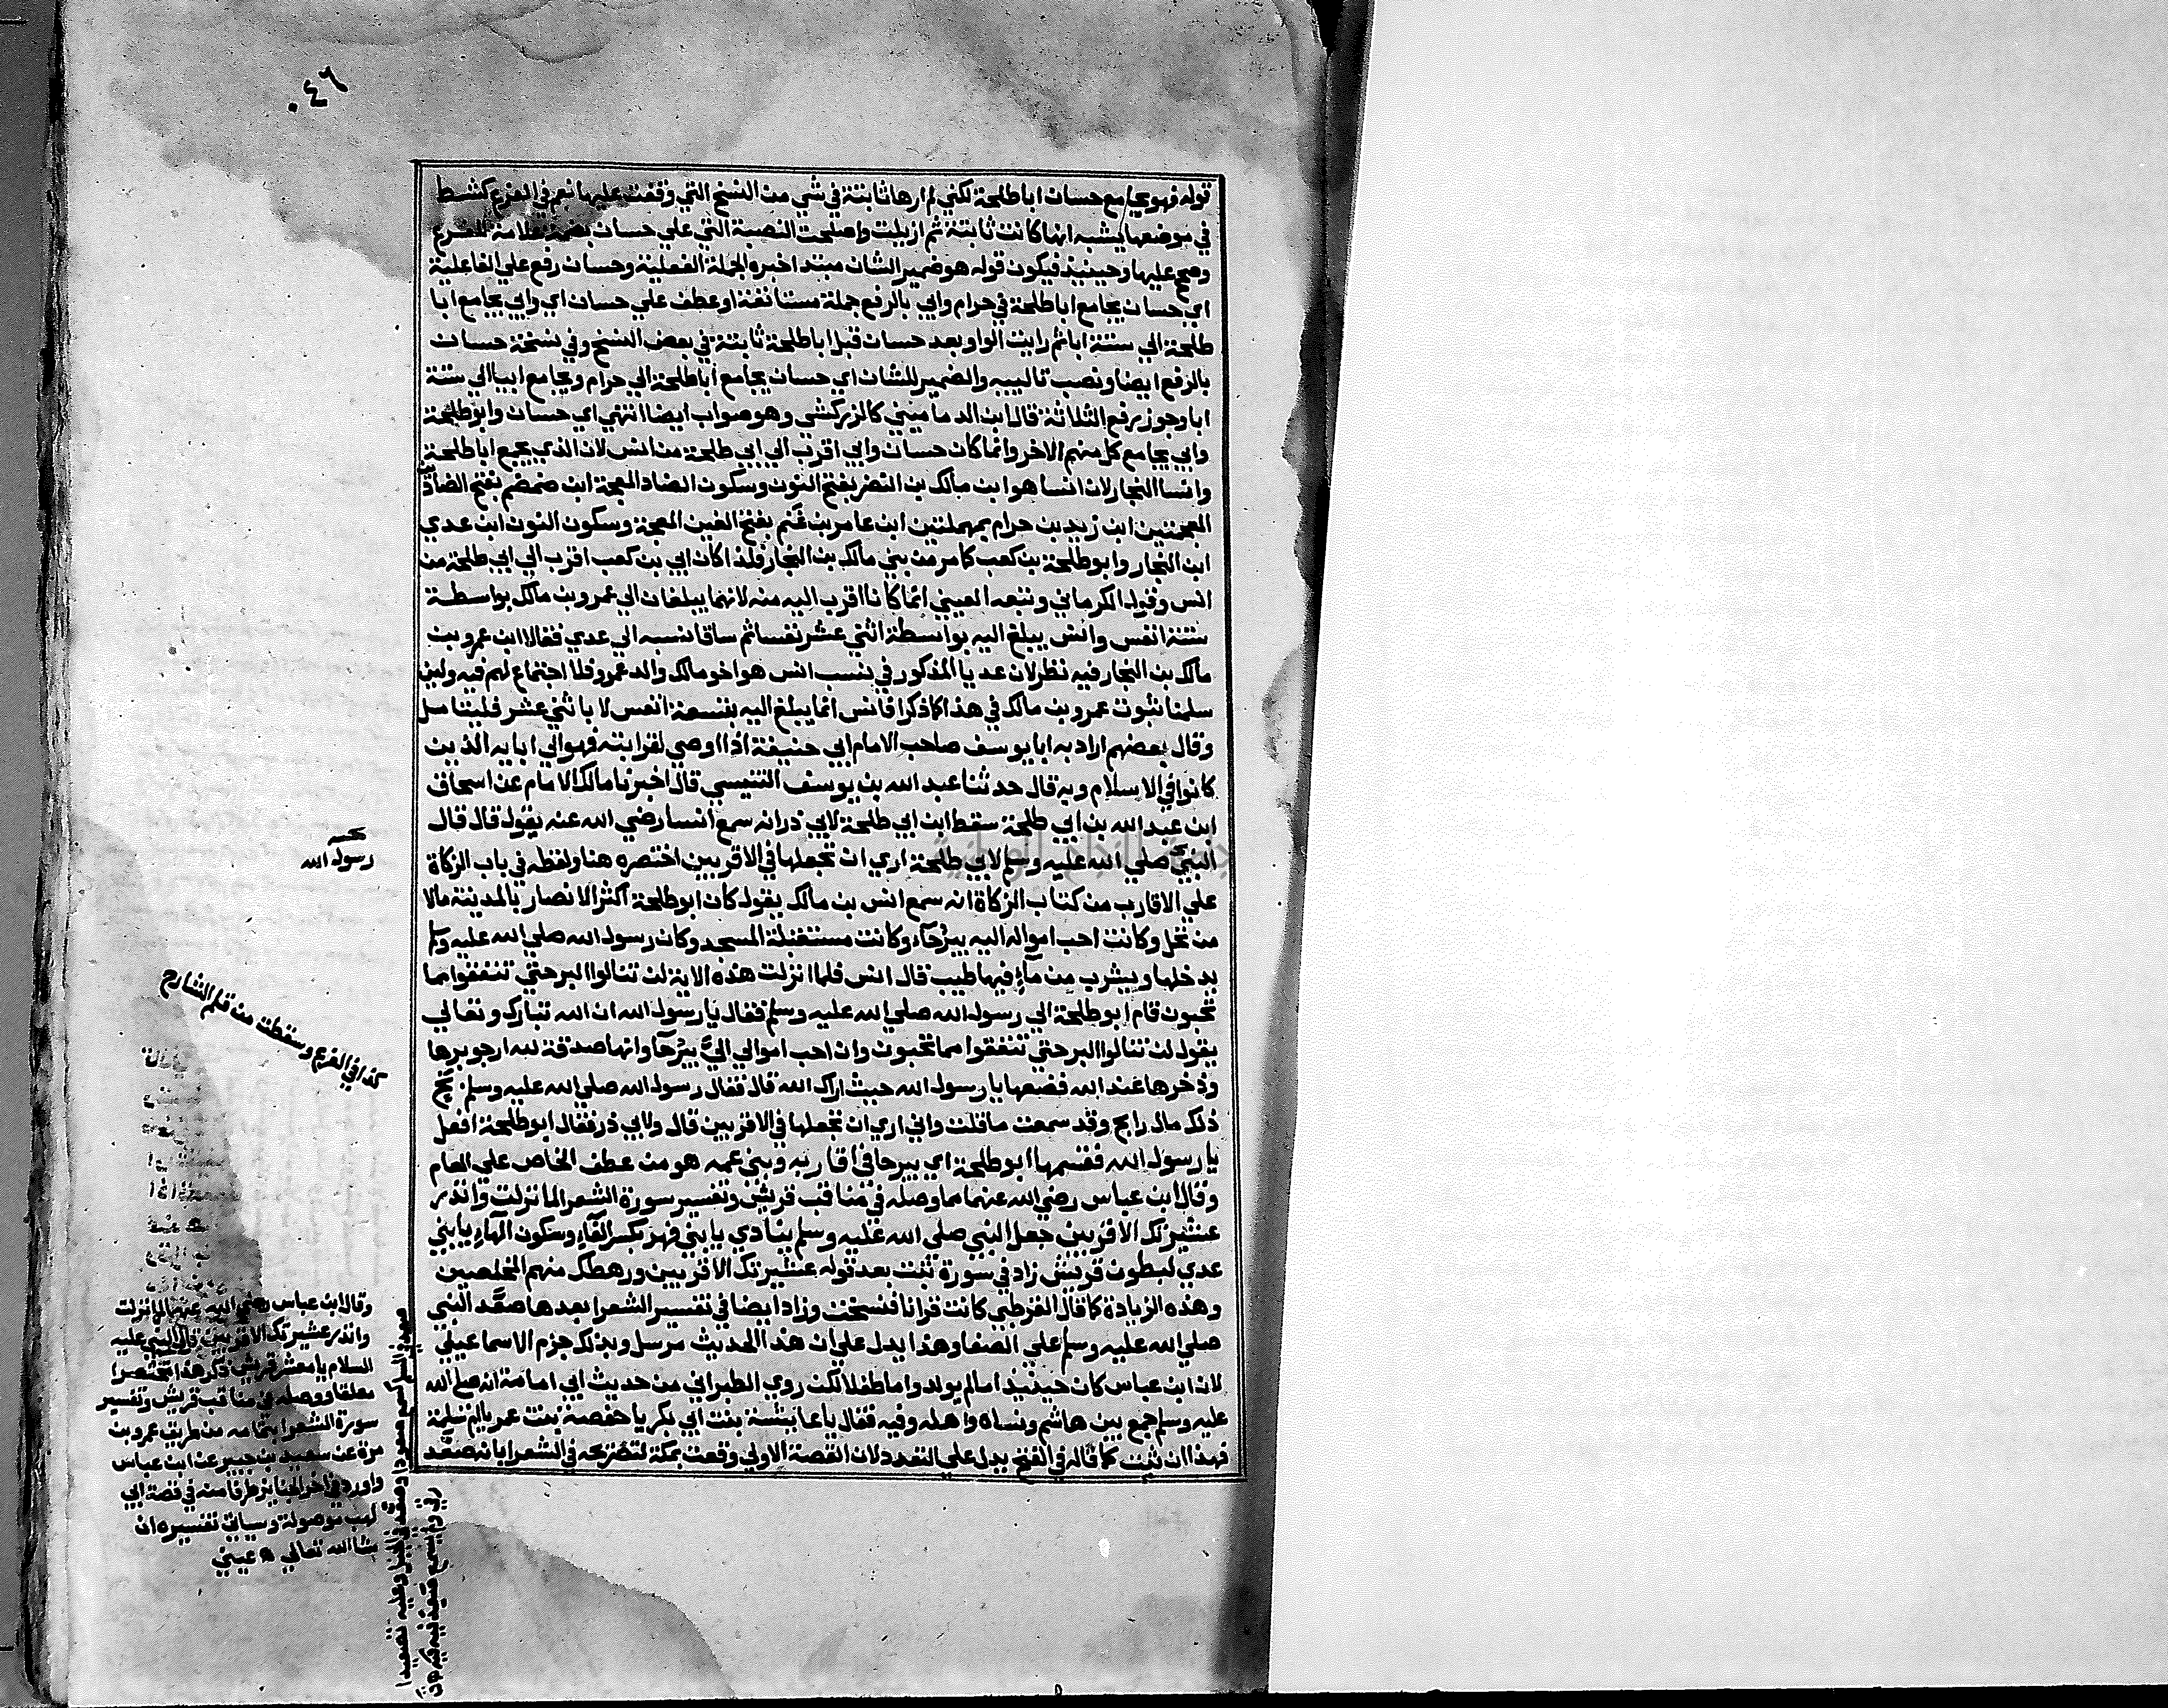 ٠٤٦
قوله فهو يجامع حسان ابا طلحة لكني لم ارها ثابتة في شي من النسخ التي وقفت عليها نعم في الفرع كشط
في موضعها يشبه انها كانت ثابتة ثم ازيلت واصلحت النصبة التي علي حسان بضمة علامة للفرع
وصح عليها وحينيذ فيكون قوله هو ضمير الشان مبتدا خبره الجملة الفعلية وحسان رفع علي الفاعلية
اي حسان يجامع ابا طلحة في حرام وابي بالرفع جملة مستانفة او عطف علي حسان اي وابي يجامع ابا
طلحة الي ستة ابا ثم رايت الواو بعد حسان قبل ابا طلحة ثابتة في بعض النسخ وفي نسخة حسان
بالرفع ايضا ونصب تالييه والضمير للشان اي حسان يجامع ابا طلحة الي حرام ويجامع ابيا الي ستة
ابا وجوز برفع الثلاثة قال ابن الدماميني كالزركشي وهو صواب ايضا انتهي اي حسان وابو طلحة
وابي يجامع كل منهم الاخر وانما كان حسان وابي اقرب الي ابي طلحة من انس لان الذي يجمع ابا طلحة
وانسا النجار لان انسا هو ابن مالك بن النضر بفتح النون وسكون الضاد المعجمة ابن ضمضم بفتح الضادين
المعجمتين ابن زيد بن حرام بمهملتين ابن عامر بن غنم بفتح الغين المعجمة وسكون النون ابن عدي
ابن النجار وابو طلحة بن كعب كامر من بني مالك بن النجار فلذا كان ابي بن كعب اقرب الي ابي طلحة من
انس وقول الكرماني وتبعه العيني انما كانا اقرب اليه منه لانهما يبلغان الي عمرو بن مالك بواسطة
ستة انفس وانس يبلغ اليه بواسطة اثني عشر نفسا ثم ساقا نسبه الي عدي فقالا ابن عمرو بن
مالك بن النجار فيه نظر لان عديا المذكور في نسب انس هو اخو مالك والد عمرو فلا اجتماع لهم فيه ولين
سلمنا ثبوت عمرو بن مالك في هذا كما ذكرا فانس انما يبلغ اليه بتسعة انفس لا باثني عشر فليتامل
وقال بعضهم اراد به ابا يوسف صاحب الامام ابي حنيفة اذا اوصي لقرابته فهو الي ابايه الذين
كانوا في الاسلام وبه قال حدثنا عبد الله بن يوسف التنيسي قال اخبرنا مالك الامام عن اسحاق
ابن عبد الله بن ابي طلحة سقط ابن ابي طلحة لابي ذر انه سمع انسا رضي الله عنه يقول قال قال
النبي صلي الله عليه وسلم لابي طلحة اري ان تجعلها في الاقربين اختصره هنا ولفظه في باب الزكاة
علي الاقارب من كتاب الزكاة انه سمع انس بن مالك يقول كان ابو طلحة اكثر الانصار بالمدينة مالا
من نخل وكانت احب امواله اليه بيرحآء وكانت مستقبلة المسجد وكان رسول الله صلي الله عليه وسلم
يدخلها ويشرب من مآء فيها طيب قال انس فلما انزلت هذه الاية لن تنالوا البر حتي تنفقوا مما
تحبون قام ابو طلحة الي رسول الله صلي الله عليه وسلم فقال يا رسول الله ان الله تبارك وتعالي
يقول لن تنالوا البر حتي تنفقوا مما تحبون وان احب اموالي اليّ بيرحآ وانها صدقة لله ارجو برها
وذخرها عند الله فضعها يا رسول الله حيث اراك الله قال فقال رسول الله صلي الله عليه وسلم بخ
ذلك مال رابح وقد سمعت ما قلت واني اري ان تجعلها في الاقربين قال ولابي ذر فقال ابو طلحة افعل
يا رسول الله فقسمها ابو طلحة اي بيرحا في اقاربه وبني عمه هو من عطف الخاص علي العام
وقال ابن عباس رضي الله عنهما مما وصله في مناقب قريش وتفسير سورة الشعرا لما نزلت وانذر
عشيرتك الاقربين جعل النبي صلي الله عليه وسلم ينادي يا بني فهر بكسر الفآء وسكون الهآء يا بني
عدي لبطون قريش زاد في سورة تبت بعد قوله عشيرتك الاقربين ورهطك منهم المخلصين
وهذه الزيادة كما قال القرطبي كانت قرانا فنسخت وزاد ايضا في تفسير الشعرا بعدها صعّد النبي
صلي الله عليه وسلم علي الصفا وهذا يدل علي ان هذا الحديث مرسل وبذلك جزم الاسماعيلي
لان ابن عباس كان حينيذ اما لم يولد واما طفلا لكن روي الطبراني من حديث ابي امامة انه صلي الله
عليه وسلم جمع بني هاشم ونساه واهله وفيه فقال يا عايشة بنت ابي بكر يا حفصة بنت عمر يا ام سلمة
فهذا ان ثبت كما قاله في الفتح يدل علي التعدد لان القصة الاولي وقعت بمكة لتصريحه في الشعرا بانه صعّد
رسول الله
كذا في الفرع وسقطت من قلم الشارح
وقال ابن عباس رضي الله عنهما لما نزلت
وانذر عشيرتك الاقربين قال النبي عليه
السلام يا معشر قريش ذكر هذا مختصرا
معلقا ووصله في مناقب قريش وتفسير
سورة الشعرا بتمامه من طريق عمرو بن
مرة عن سعيد بن جبير عن ابن عباس
واورد في اخر الجنايز طرفا منه في قصة ابي
لهب موصولة وسياتي تفسيره ان
شا الله تعالي ه عيني